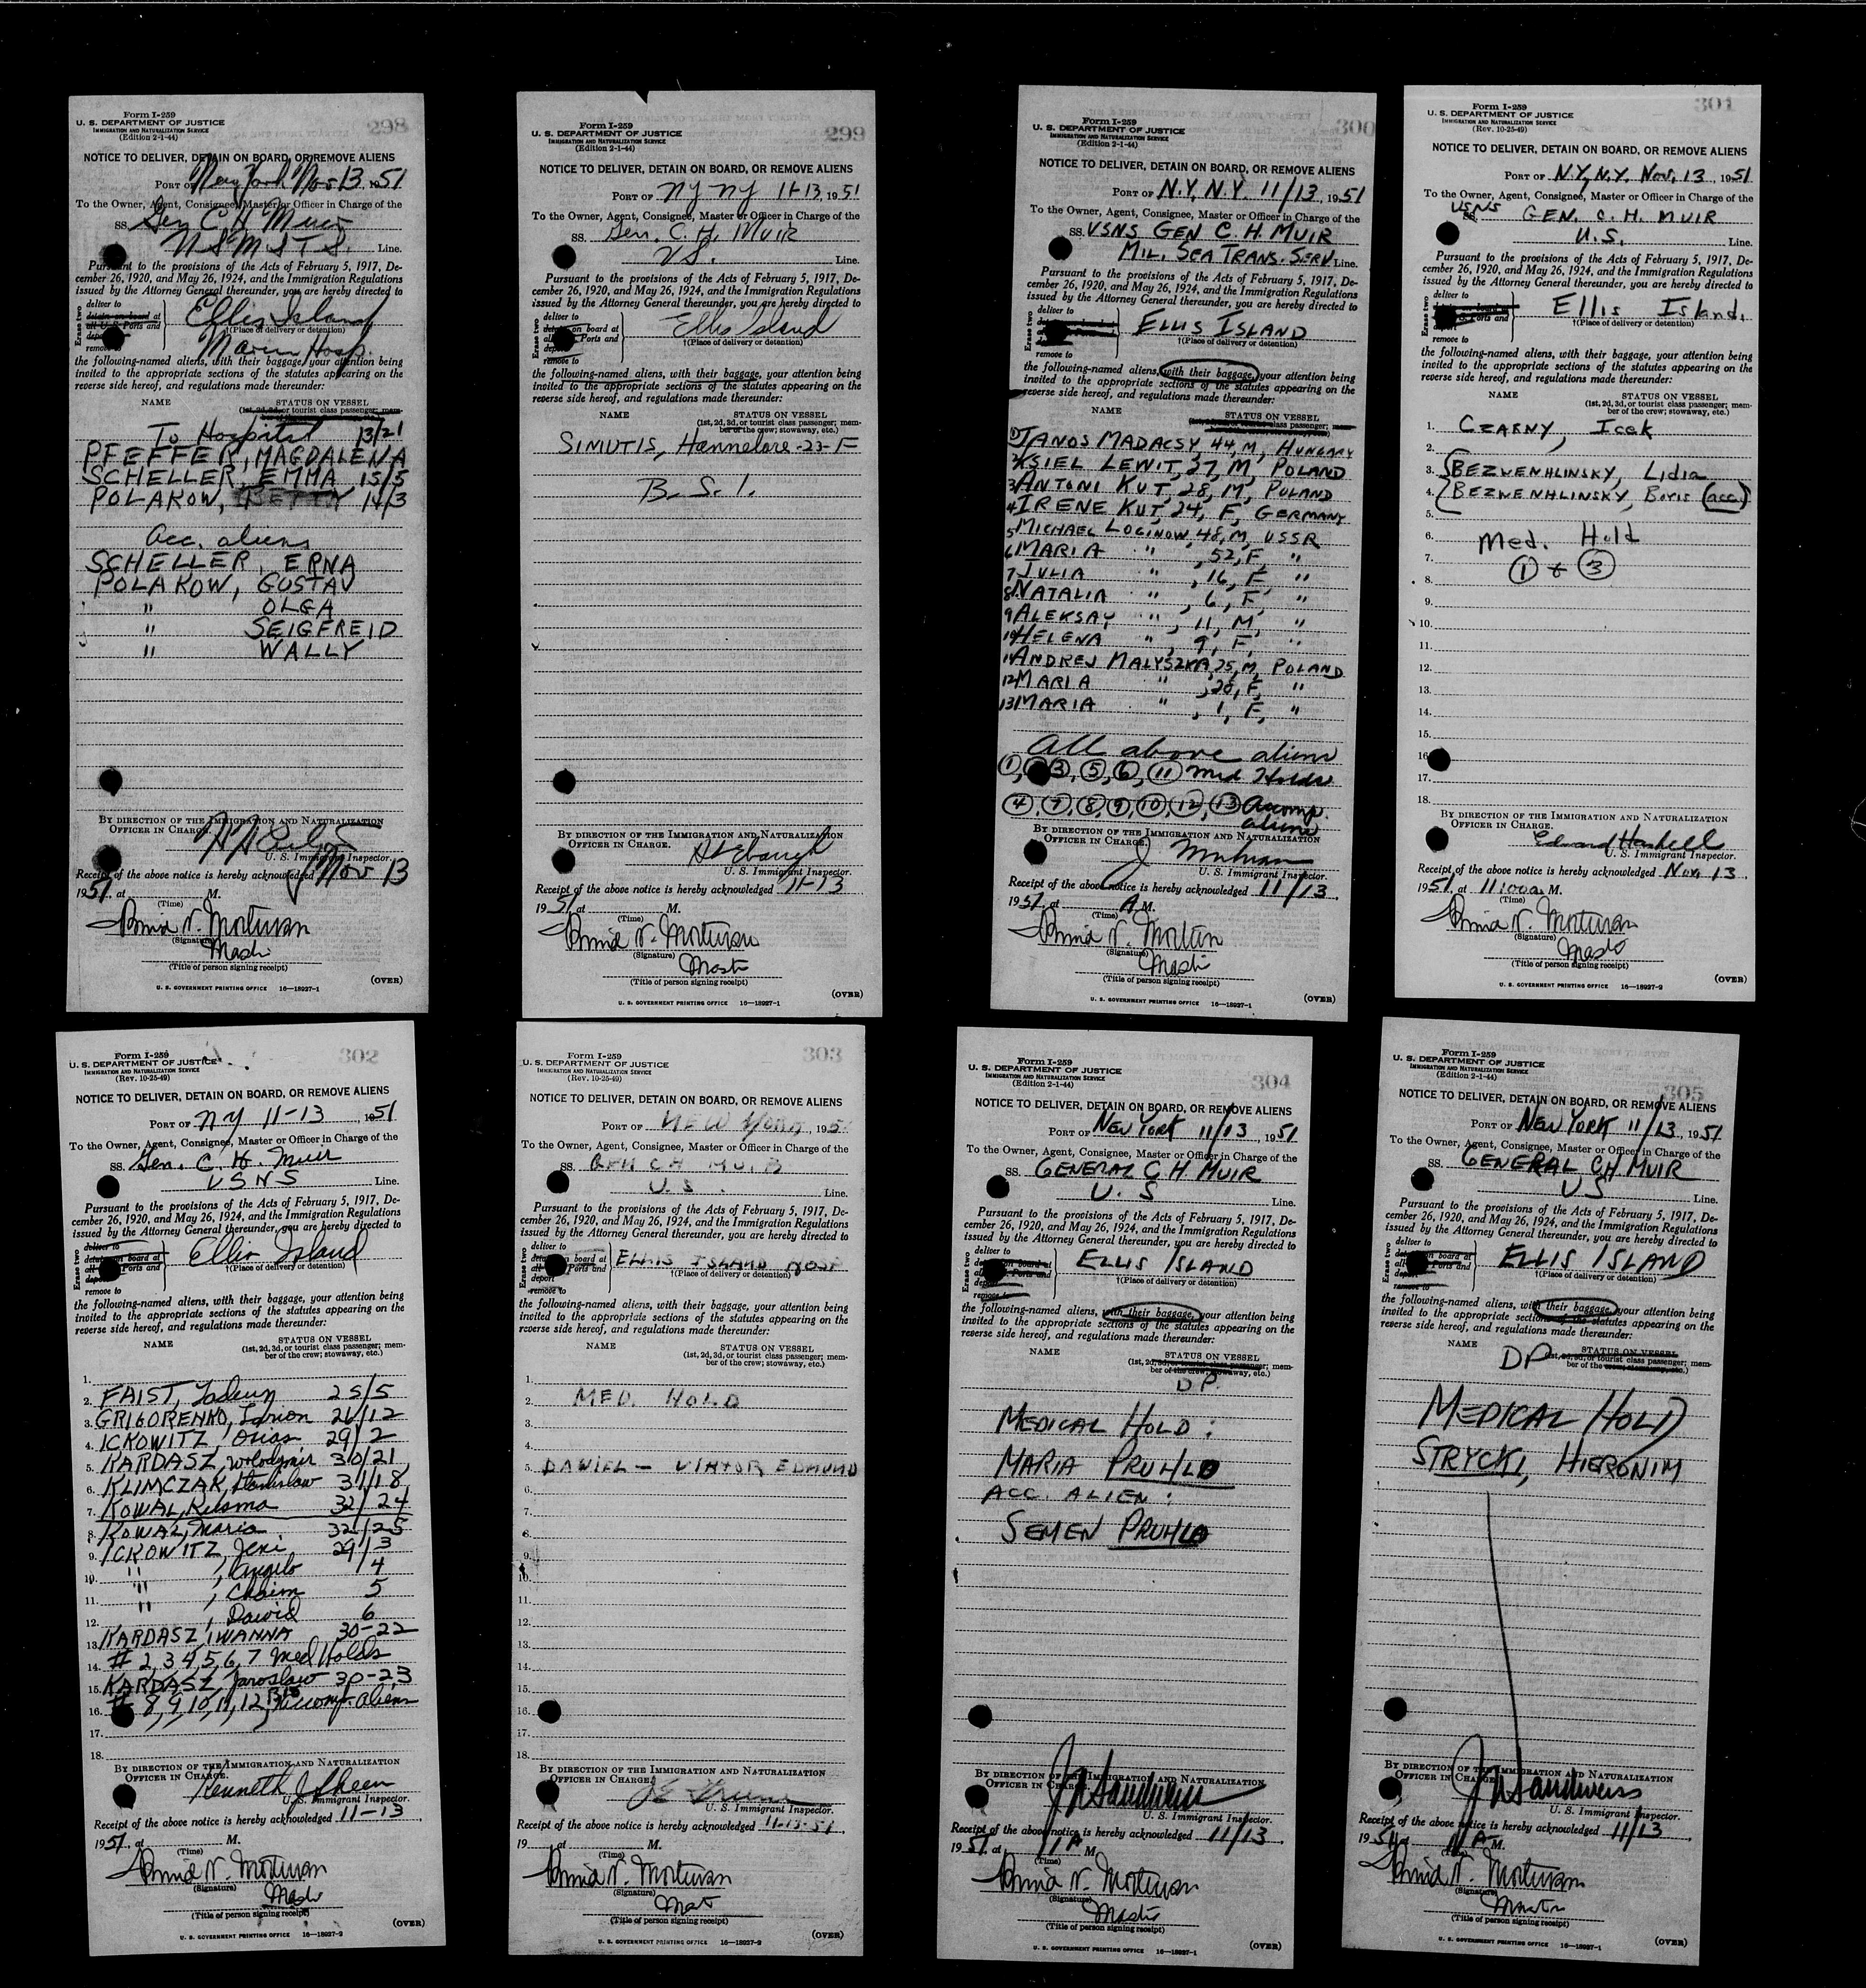 298
Form I-259
U. S. DEPARTMENT OF JUSTICE
IMMIGRATION AND NATURALIZATION SERVICE
(Edition 2-1-44)
NOTICE TO DELIVER, DETAIN ON BOARD, OR REMOVE ALIENS
PORT OF New York Nov 13, 1951
To the Owner, Agent, Consignee, Master or Officer in Charge of the
SS. Gen C H Muir
USMSTS. Line.
Pursuant to the provisions of the Acts of February 5, 1917, De-
cember 26, 1920, and May 26, 1924, and the Immigration Regulations
issued by the Attorney General thereunder, you are hereby directed to
Erase two
deliver to
detain on board at
all U. S. Ports and
remove to
Ellis Island
†(Place of delivery or detention)
Marine Hosp.
the following-named aliens, with their baggage, your attention being
invited to the appropriate sections of the statutes appearing on the
reverse side hereof, and regulations made thereunder:
NAME STATUS ON VESSEL
(1st, 2d, 3d, or tourist class passenger; mem-
To Hospital 13/21
PFEFFER, MAGDALENA
SCHELLER, EMMA 15/5
POLAKOW, BETTY 14/3
Acc. aliens
SCHELLER, ERNA
POLAKOW, GUSTAV
" OLGA
" SEIGFREID
" WALLY
BY DIRECTION OF THE IMMIGRATION AND NATURALIZATION
OFFICER IN CHARGE.
U. S. Immigrant Inspector.
Receipt of the above notice is hereby acknowledged Nov 13
1951, at M.
(Time)
(Signature)
(Title of person signing receipt)
(OVER)
U. S. GOVERNMENT PRINTING OFFICE 16—18927-1
299
Form I-259
U. S. DEPARTMENT OF JUSTICE
IMMIGRATION AND NATURALIZATION SERVICE
(Edition 2-1-44)
NOTICE TO DELIVER, DETAIN ON BOARD, OR REMOVE ALIENS
PORT OF NY NY 11-13, 1951
To the Owner, Agent, Consignee, Master or Officer in Charge of the
SS. Gen. C. H. Muir
US. Line.
Pursuant to the provisions of the Acts of February 5, 1917, De-
cember 26, 1920, and May 26, 1924, and the Immigration Regulations
issued by the Attorney General thereunder, you are hereby directed to
Erase two
deliver to
detain on board at
all Ports and
remove to
Ellis Island
†(Place of delivery or detention)
the following-named aliens, with their baggage, your attention being
invited to the appropriate sections of the statutes appearing on the
reverse side hereof, and regulations made thereunder:
NAME STATUS ON VESSEL
(1st, 2d, 3d, or tourist class passenger; mem-
ber of the crew; stowaway, etc.)
SIMUTIS, Hannelore-23-F
B. S. I.
BY DIRECTION OF THE IMMIGRATION AND NATURALIZATION
OFFICER IN CHARGE.
U. S. Immigrant Inspector.
Receipt of the above notice is hereby acknowledged 11-13
1951, at M.
(Time)
(Signature)
(Title of person signing receipt)
(OVER)
U. S. GOVERNMENT PRINTING OFFICE 16—18927-1
300
Form I-259
U. S. DEPARTMENT OF JUSTICE
IMMIGRATION AND NATURALIZATION SERVICE
(Edition 2-1-44)
NOTICE TO DELIVER, DETAIN ON BOARD, OR REMOVE ALIENS
PORT OF N.Y, N.Y. 11/13, 1951
To the Owner, Agent, Consignee, Master or Officer in Charge of the
SS. USNS GEN C. H. MUIR
MIL. SEA TRANS. SERV. Line.
Pursuant to the provisions of the Acts of February 5, 1917, De-
cember 26, 1920, and May 26, 1924, and the Immigration Regulations
issued by the Attorney General thereunder, you are hereby directed to
Erase two
deliver to
remove to
ELLIS ISLAND
†(Place of delivery or detention)
the following-named aliens, with their baggage, your attention being
invited to the appropriate sections of the statutes appearing on the
reverse side hereof, and regulations made thereunder:
NAME STATUS ON VESSEL
1 JANOS MADACSY, 44, M, HUNGARY
2 KSIEL LEWIT, 37, M, POLAND
3 ANTONI KUT, 28, M, POLAND
4 IRENE KUT, 24, F, GERMANY
5 MICHAEL LOGINOW, 48, M, USSR
6 MARIA " , 52, F, "
7 JULIA " , 16, F, "
8 NATALIA " , 6, F, "
9 ALEKSAY " , 11, M, "
10 HELENA " , 9, F, "
11 ANDREJ MALYSZKA, 25, M, POLAND
12 MARIA " , 20, F, "
13 MARIA " , 1, F, "
All above aliens
1, 3, 5, 6, 11 Med Holds
4, 7, 8, 9, 10, 12, 13 Accomp.
aliens
BY DIRECTION OF THE IMMIGRATION AND NATURALIZATION
OFFICER IN CHARGE.
U. S. Immigrant Inspector.
Receipt of the above notice is hereby acknowledged 11/13,
1951, at A M.
(Time)
(Signature)
(Title of person signing receipt)
(OVER)
U. S. GOVERNMENT PRINTING OFFICE 16—18927-1
301
Form I-259
U. S. DEPARTMENT OF JUSTICE
IMMIGRATION AND NATURALIZATION SERVICE
(Rev. 10-25-49)
NOTICE TO DELIVER, DETAIN ON BOARD, OR REMOVE ALIENS
PORT OF N.Y, N.Y. Nov. 13, 1951
To the Owner, Agent, Consignee, Master or Officer in Charge of the
USNS
SS. GEN. C. H. MUIR
U.S. Line.
Pursuant to the provisions of the Acts of February 5, 1917, De-
cember 26, 1920, and May 26, 1924, and the Immigration Regulations
issued by the Attorney General thereunder, you are hereby directed to
Erase two
deliver to
remove to
Ellis Island.
†(Place of delivery or detention)
the following-named aliens, with their baggage, your attention being
invited to the appropriate sections of the statutes appearing on the
reverse side hereof, and regulations made thereunder:
NAME STATUS ON VESSEL
(1st, 2d, 3d, or tourist class passenger; mem-
ber of the crew; stowaway, etc.)
1. CZARNY, Icek
2.
3. BEZWENHLINSKY, Lidia
4. BEZWENHLINSKY, Boris (acc.)
5.
6. Med. Hold
7. 1 & 3
8.
9.
10.
11.
12.
13.
14.
15.
16.
17.
18.
BY DIRECTION OF THE IMMIGRATION AND NATURALIZATION
OFFICER IN CHARGE.
Edward Haskell
U. S. Immigrant Inspector.
Receipt of the above notice is hereby acknowledged Nov. 13,
1951, at 11:00 a. M.
(Time)
(Signature)
(Title of person signing receipt)
(OVER)
U. S. GOVERNMENT PRINTING OFFICE 16—18927-2
302
Form I-259
U. S. DEPARTMENT OF JUSTICE
IMMIGRATION AND NATURALIZATION SERVICE
(Rev. 10-25-49)
NOTICE TO DELIVER, DETAIN ON BOARD, OR REMOVE ALIENS
PORT OF NY 11-13, 1951
To the Owner, Agent, Consignee, Master or Officer in Charge of the
SS. Gen. C. H. Muir
USNS Line.
Pursuant to the provisions of the Acts of February 5, 1917, De-
cember 26, 1920, and May 26, 1924, and the Immigration Regulations
issued by the Attorney General thereunder, you are hereby directed to
Erase two
deliver to
detain on board at
all Ports and
deport
remove to
Ellis Island
†(Place of delivery or detention)
the following-named aliens, with their baggage, your attention being
invited to the appropriate sections of the statutes appearing on the
reverse side hereof, and regulations made thereunder:
NAME STATUS ON VESSEL
(1st, 2d, 3d, or tourist class passenger; mem-
ber of the crew; stowaway, etc.)
1.
2. FAIST, 25/5
3. GRIGORENKO, Larion 26/12
4. ICKOWITZ, Osias 29/2
5. KARDASZ, Wolodymir 30/21
6. KLIMCZAK, Stanislaw 31/18
7. KOWAL, Kusma 32/24
8. KOWAL, Maria 32/25
9. ICKOWITZ, Jeni 29/3
10. " , Angelo 4
11. " , Chaim 5
12. , Dawid 6
13. KARDASZ, IWANNA 30-22
14. # 2, 3, 4, 5, 6, 7 Med Holds
15. KARDASZ, Jaroslaw 30-23
16. # 8, 9, 10, 11, 12, 13, 15 accomp. aliens
17.
18.
BY DIRECTION OF THE IMMIGRATION AND NATURALIZATION
OFFICER IN CHARGE.
Kenneth J Sheen
U. S. Immigrant Inspector.
Receipt of the above notice is hereby acknowledged 11-13,
1951, at M.
(Time)
(Signature)
(Title of person signing receipt)
(OVER)
U. S. GOVERNMENT PRINTING OFFICE 16—18927-2
303
Form I-259
U. S. DEPARTMENT OF JUSTICE
IMMIGRATION AND NATURALIZATION SERVICE
(Rev. 10-25-49)
NOTICE TO DELIVER, DETAIN ON BOARD, OR REMOVE ALIENS
PORT OF NEW YORK, 195
To the Owner, Agent, Consignee, Master or Officer in Charge of the
SS. GEN C H MUIR
U.S. Line.
Pursuant to the provisions of the Acts of February 5, 1917, De-
cember 26, 1920, and May 26, 1924, and the Immigration Regulations
issued by the Attorney General thereunder, you are hereby directed to
Erase two
deliver to
detain on board at
all Ports and
deport
remove to
ELLIS ISLAND HOSP
†(Place of delivery or detention)
the following-named aliens, with their baggage, your attention being
invited to the appropriate sections of the statutes appearing on the
reverse side hereof, and regulations made thereunder:
NAME STATUS ON VESSEL
(1st, 2d, 3d, or tourist class passenger; mem-
ber of the crew; stowaway, etc.)
1.
2. MED. HOLD
3.
4.
5. DAWIEL — VIKTOR EDMUND
6.
7.
8.
9.
10.
11.
12.
13.
14.
15.
16.
17.
18.
BY DIRECTION OF THE IMMIGRATION AND NATURALIZATION
OFFICER IN CHARGE.
U. S. Immigrant Inspector.
Receipt of the above notice is hereby acknowledged 11-13-51
19 at M.
(Time)
(Signature)
(Title of person signing receipt)
(OVER)
U. S. GOVERNMENT PRINTING OFFICE 16—18927-2
304
Form I-259
U. S. DEPARTMENT OF JUSTICE
IMMIGRATION AND NATURALIZATION SERVICE
(Edition 2-1-44)
NOTICE TO DELIVER, DETAIN ON BOARD, OR REMOVE ALIENS
PORT OF NEW YORK 11/13, 1951
To the Owner, Agent, Consignee, Master or Officer in Charge of the
SS. GENERAL C H MUIR
U. S Line.
Pursuant to the provisions of the Acts of February 5, 1917, De-
cember 26, 1920, and May 26, 1924, and the Immigration Regulations
issued by the Attorney General thereunder, you are hereby directed to
Erase two
deliver to
detain on board at
all Ports and
deport
remove to
ELLIS ISLAND
†(Place of delivery or detention)
the following-named aliens, with their baggage, your attention being
invited to the appropriate sections of the statutes appearing on the
reverse side hereof, and regulations made thereunder:
NAME STATUS ON VESSEL
(1st, 2d, 3d, or tourist class passenger; mem-
ber of the crew; stowaway, etc.)
DP.
MEDICAL HOLD:
MARIA PRUHLO
ACC. ALIEN:
SEMEN PRUHLO
BY DIRECTION OF THE IMMIGRATION AND NATURALIZATION
OFFICER IN CHARGE.
U. S. Immigrant Inspector.
Receipt of the above notice is hereby acknowledged 11/13,
1951, at 11 A M.
(Time)
(Signature)
(Title of person signing receipt)
(OVER)
U. S. GOVERNMENT PRINTING OFFICE 16—18927-1
305
Form I-259
U. S. DEPARTMENT OF JUSTICE
IMMIGRATION AND NATURALIZATION SERVICE
(Edition 2-1-44)
NOTICE TO DELIVER, DETAIN ON BOARD, OR REMOVE ALIENS
PORT OF NEW YORK 11/13, 1951
To the Owner, Agent, Consignee, Master or Officer in Charge of the
SS. GENERAL C H MUIR
US Line.
Pursuant to the provisions of the Acts of February 5, 1917, De-
cember 26, 1920, and May 26, 1924, and the Immigration Regulations
issued by the Attorney General thereunder, you are hereby directed to
Erase two
deliver to
detain on board at
all Ports and
deport
remove to
ELLIS ISLAND
†(Place of delivery or detention)
the following-named aliens, with their baggage, your attention being
invited to the appropriate sections of the statutes appearing on the
reverse side hereof, and regulations made thereunder:
NAME STATUS ON VESSEL
DP (1st, 2d, 3d, or tourist class passenger; mem-
ber of the crew; stowaway, etc.)
MEDICAL HOLD
STRYCKI, HIERONIM
BY DIRECTION OF THE IMMIGRATION AND NATURALIZATION
OFFICER IN CHARGE.
U. S. Immigrant Inspector.
Receipt of the above notice is hereby acknowledged 11/13,
1951, at 11 A M.
(Time)
(Signature)
(Title of person signing receipt)
(OVER)
U. S. GOVERNMENT PRINTING OFFICE 16—18927-1